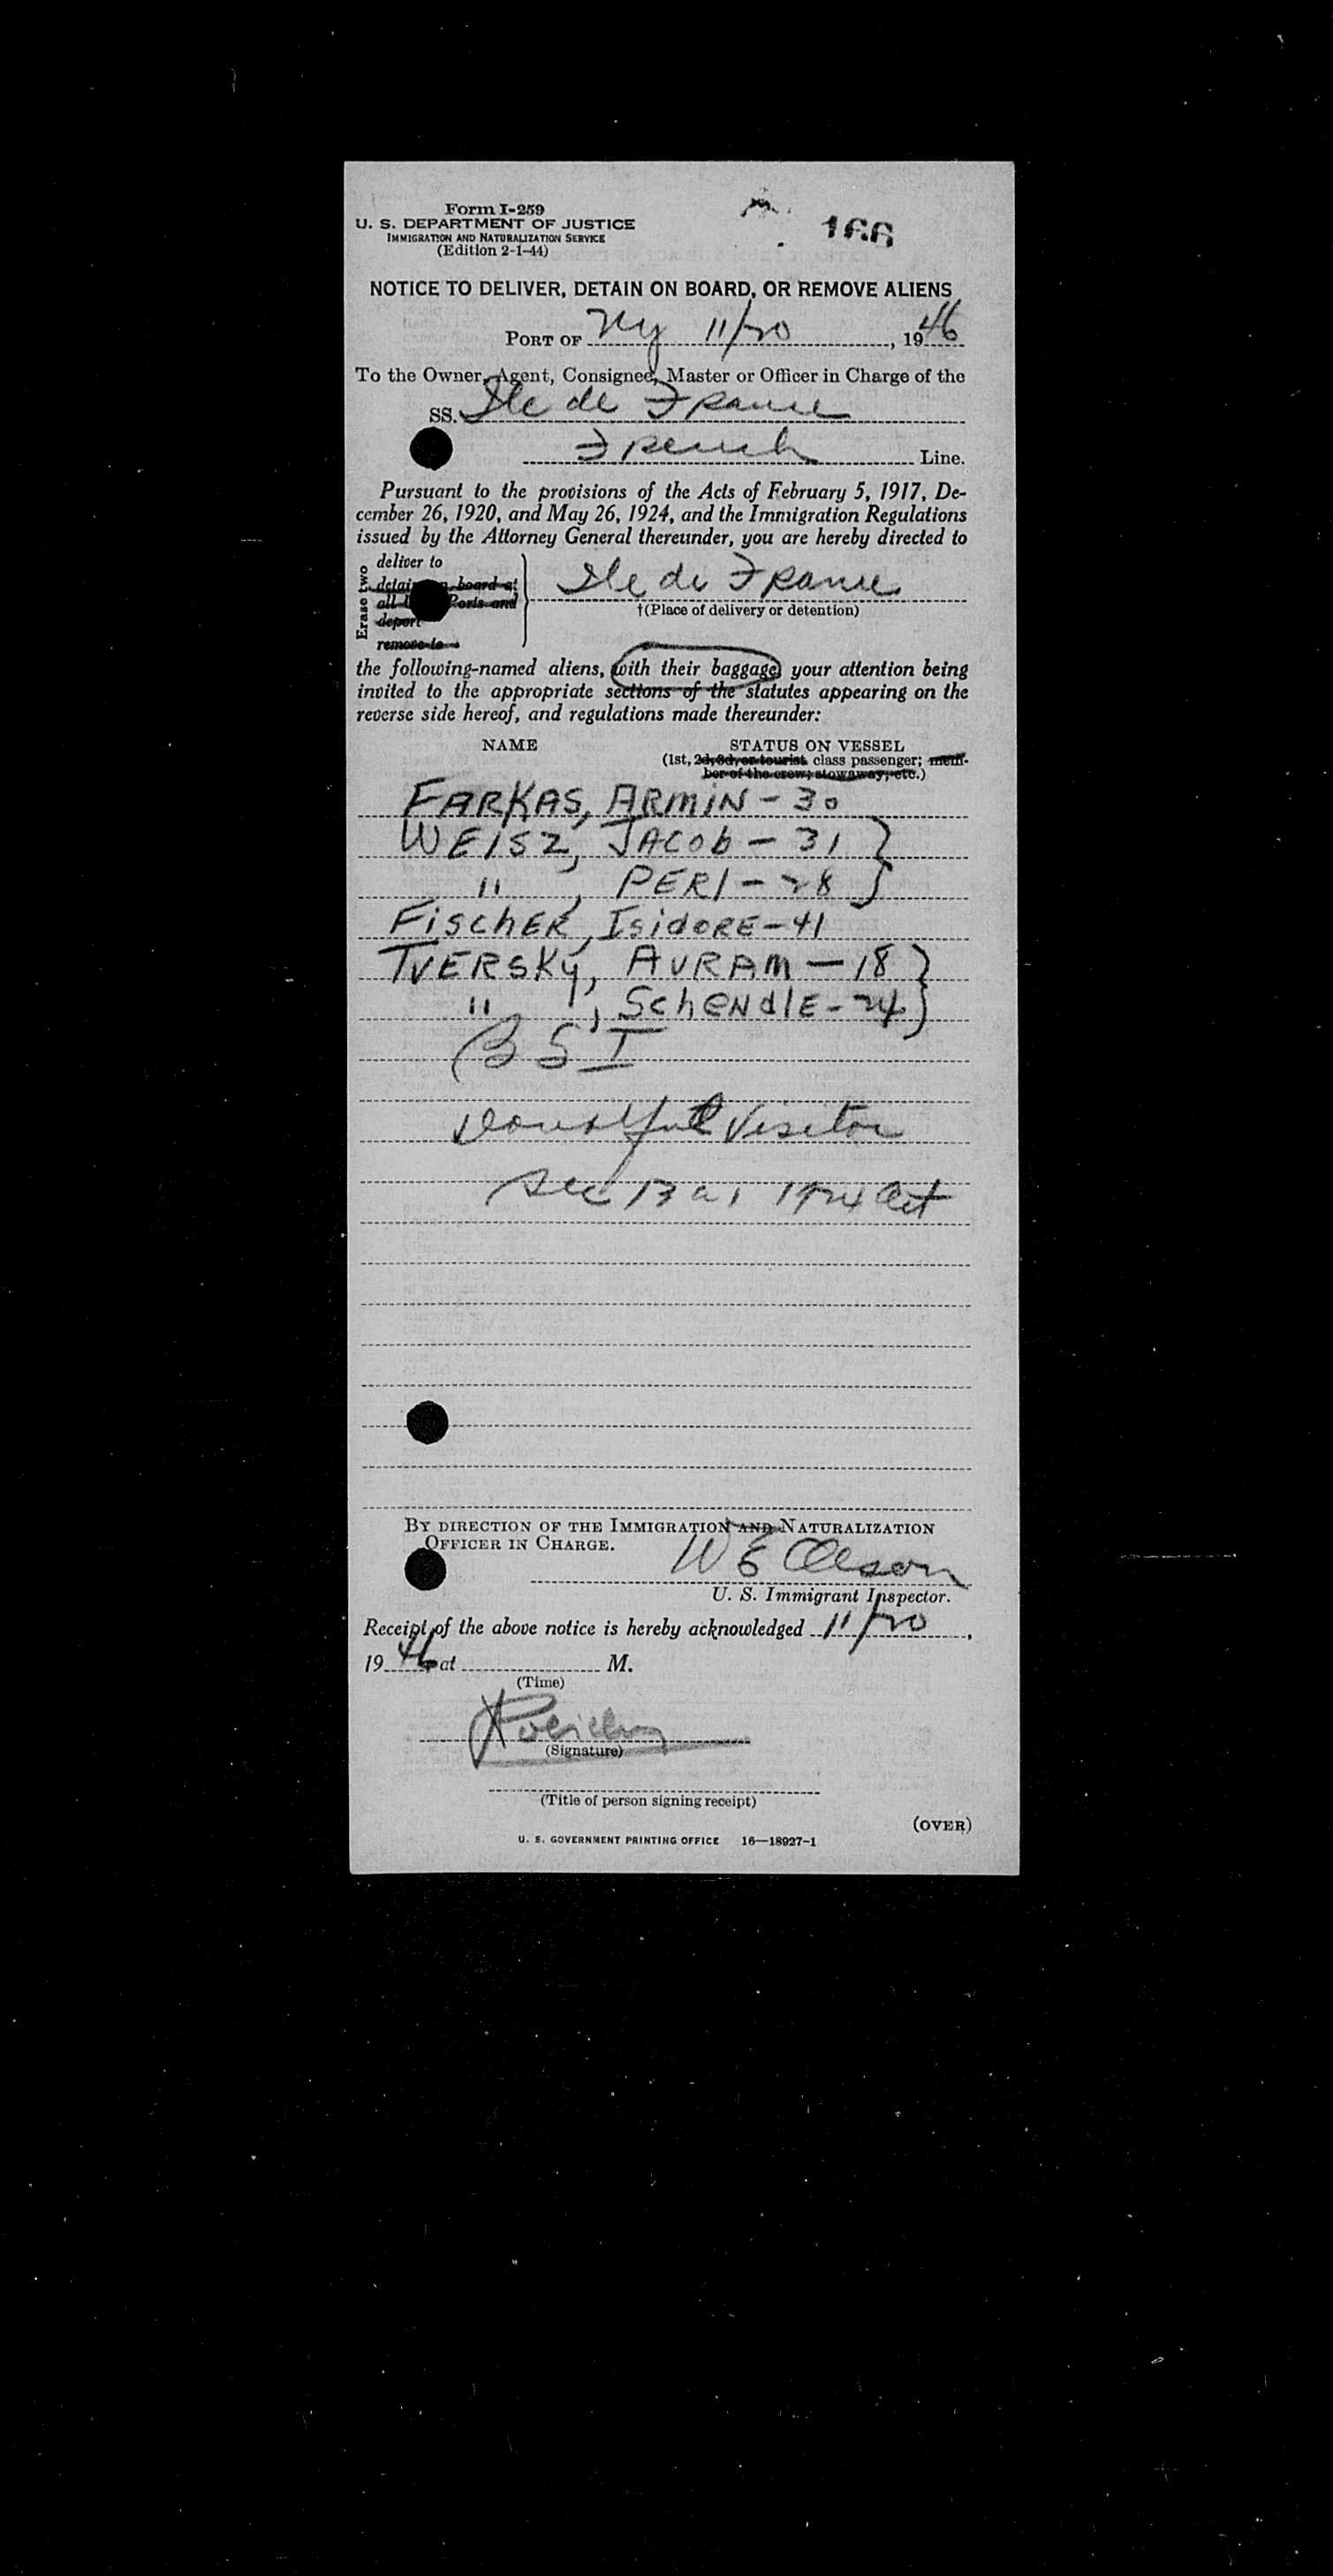 Form I-259
U. S. DEPARTMENT OF JUSTICE
IMMIGRATION AND NATURALIZATION SERVICE
(Edition 2-1-44)
166
NOTICE TO DELIVER, DETAIN ON BOARD, OR REMOVE ALIENS
PORT OF NY 11/20, 1946
To the Owner, Agent, Consignee, Master or Officer in Charge of the
SS. Ile de France
French Line.
Pursuant to the provisions of the Acts of February 5, 1917, De-
cember 26, 1920, and May 26, 1924, and the Immigration Regulations
issued by the Attorney General thereunder, you are hereby directed to
Erase two
deliver to
board at
all Ports and
deport
remove to
Ile de France
†(Place of delivery or detention)
the following-named aliens, with their baggage, your attention being
invited to the appropriate sections of the statutes appearing on the
reverse side hereof, and regulations made thereunder:
NAME STATUS ON VESSEL
(1st, 2d, 3d, or tourist class passenger; mem-
ber of the crew; stowaway, etc.)
FARKAS, ARMIN - 30
WEISZ, JACOB - 31 }
" , PERI - 28 }
FISCHER, ISIDORE - 41
TVERSKY, AVRAM - 18 }
" , SCHENDLE - 24 }
BSI
Doubtful Visitor
Sec 13 a 1 1924 Act
BY DIRECTION OF THE IMMIGRATION AND NATURALIZATION
OFFICER IN CHARGE.
W E Olson
U. S. Immigrant Inspector.
Receipt of the above notice is hereby acknowledged 11/20,
1946 at M.
(Time)
(Signature)
(Title of person signing receipt)
(OVER)
U. S. GOVERNMENT PRINTING OFFICE 16—18927-1